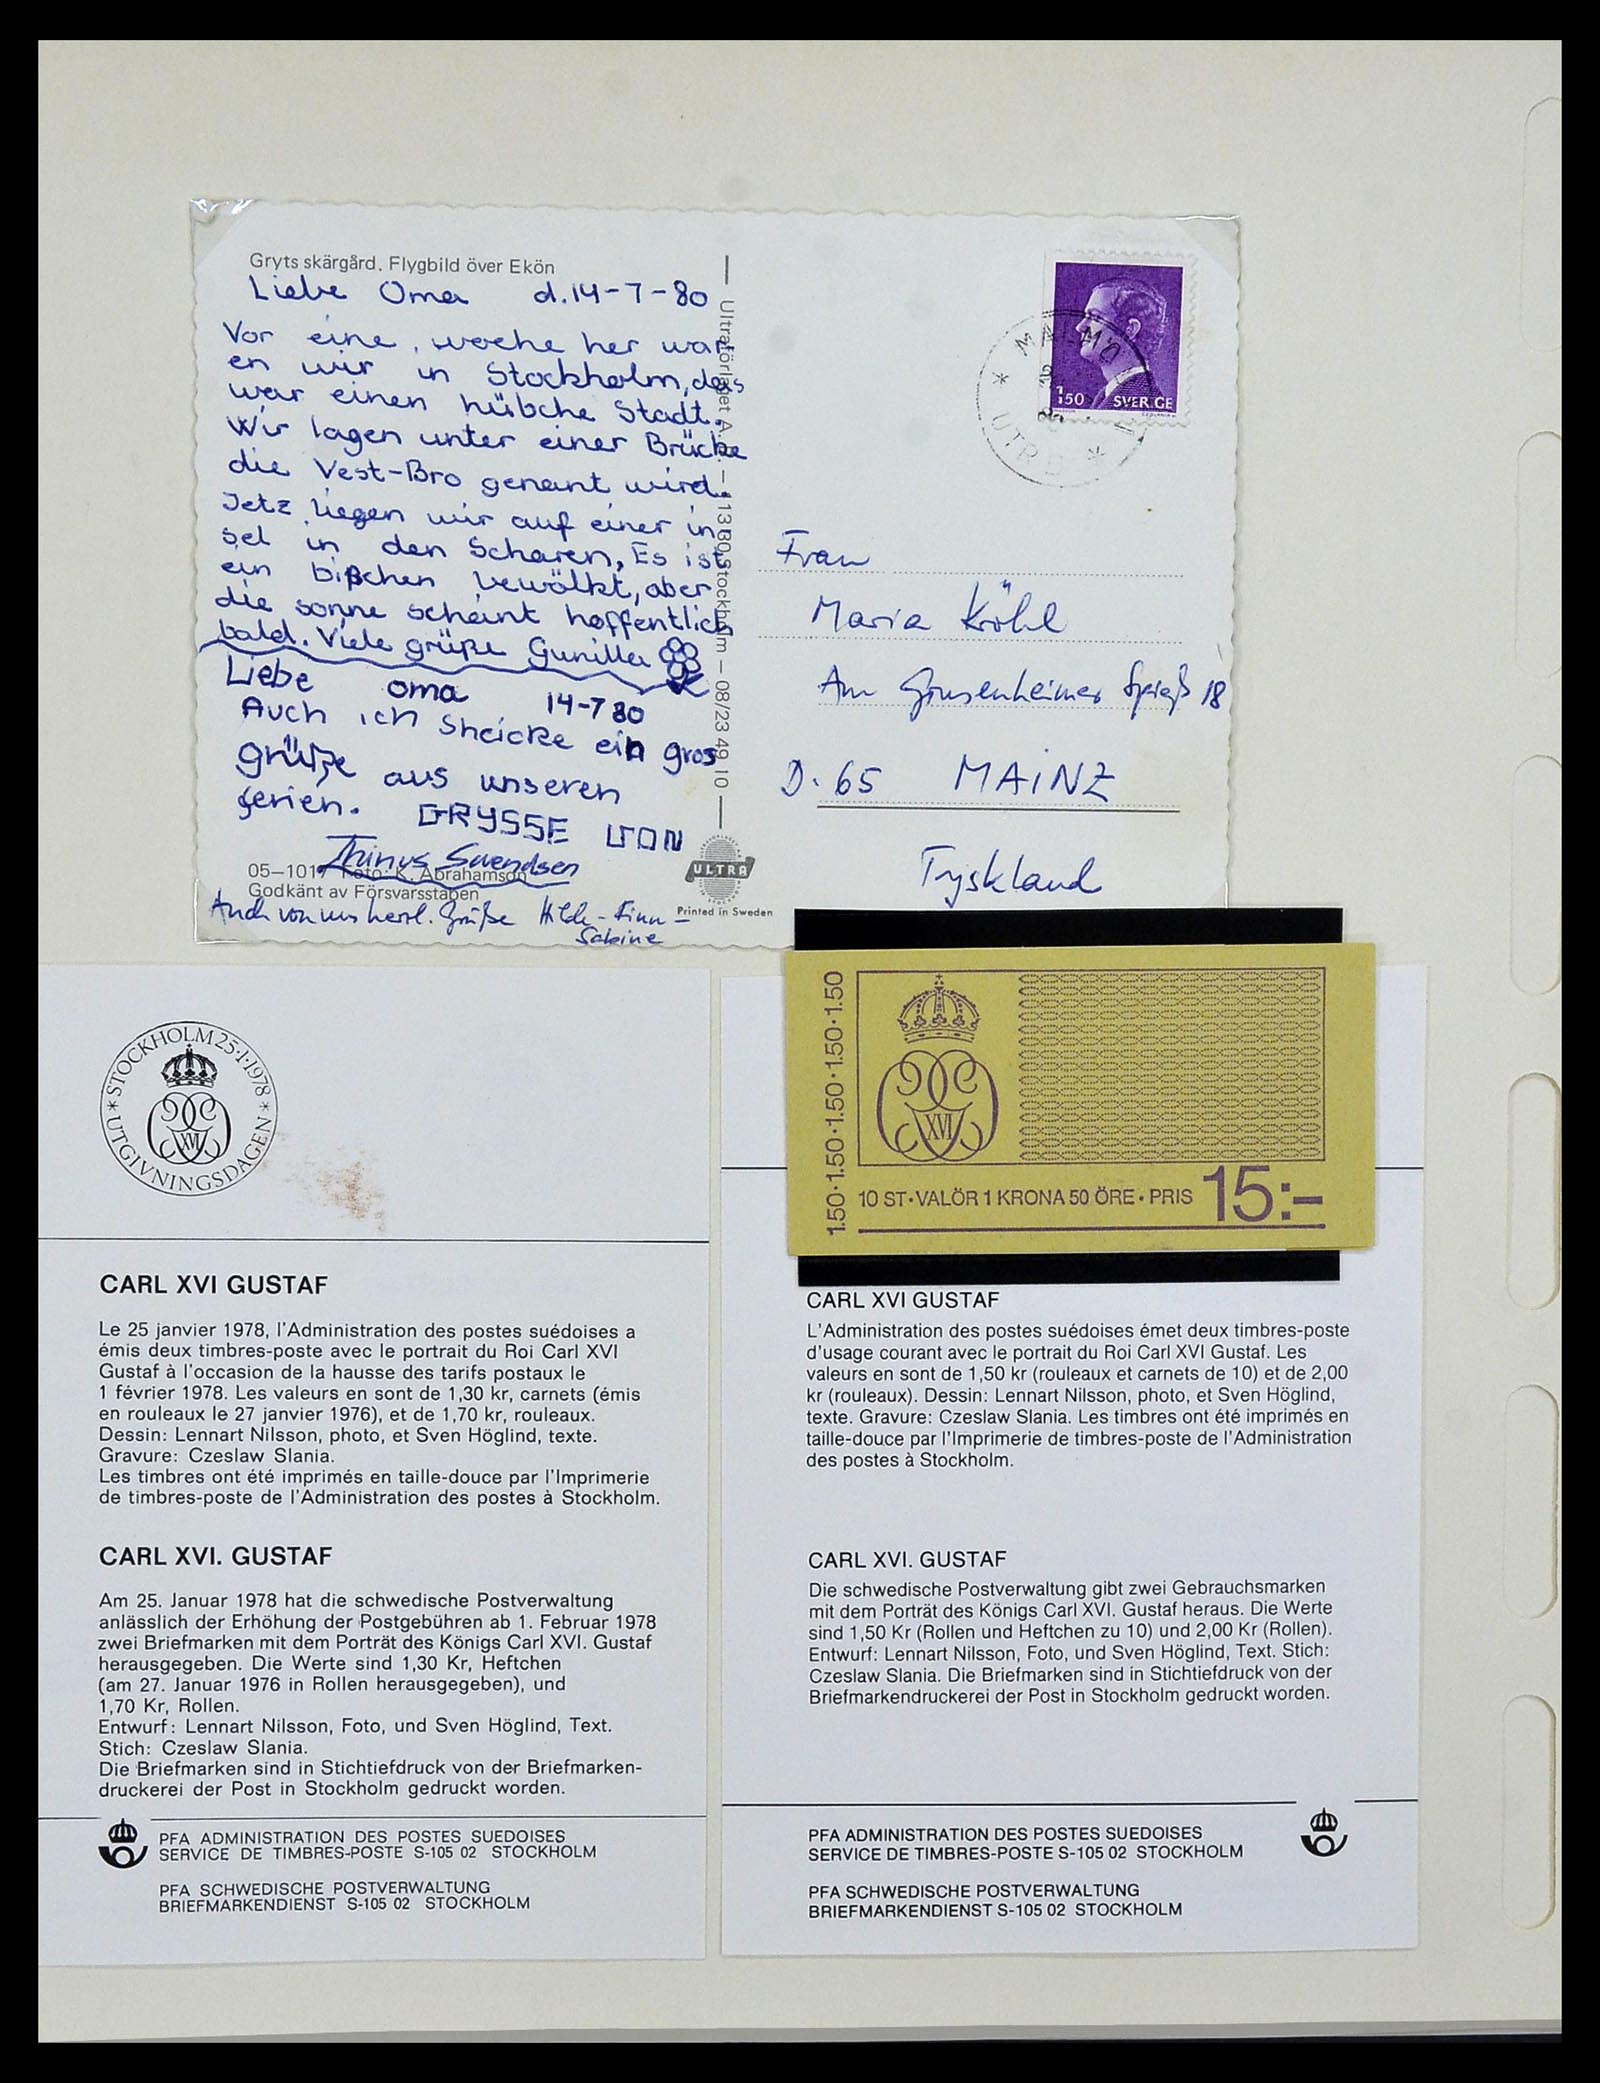 Gryts skärgård. Flygbild över Ekön
Liebe Oma d. 14-7-80
Vor eine, woche her war
en wir in Stockholm, das
war einen hübche Stadt.
Wir lagen unter einer Brücke
die Vest-Bro genant wird.
Jetz liegen wir auf einer in
sel in den Scharen, Es ist
ein bißchen bewölkt, aber
die sonne scheint hoffentlich
bald. Viele grüße Gunilla
Liebe oma 14-7 80
Auch ich Sheicke ein gros
grüße aus unseren
ferien. GRYSSE VON
Thinus Svendsen
05–101 Foto: K. Abrahamson
Godkänt av Försvarsstaben
Auch von uns herzl. Grüße Hilde - Finn -
Sabine
Ultraförlaget A. – 113 80 Stockholm – 08/23 49 10
ULTRA
Printed in Sweden
1.50 SVERIGE
MALMÖ
UTR
Frau
Maria Köhl
Am Gonsenheimer Spieß 18
D. 65 MAINZ
Tyskland
1.50·1.50·1.50·1.50·1.50
XVI
10 ST·VALÖR 1 KRONA 50 ÖRE·PRIS 15:–
STOCKHOLM 25·1·1978
* UTGIVNINGSDAGEN *
XVI
CARL XVI GUSTAF
Le 25 janvier 1978, l'Administration des postes suédoises a
émis deux timbres-poste avec le portrait du Roi Carl XVI
Gustaf à l'occasion de la hausse des tarifs postaux le
1 février 1978. Les valeurs en sont de 1,30 kr, carnets (émis
en rouleaux le 27 janvier 1976), et de 1,70 kr, rouleaux.
Dessin: Lennart Nilsson, photo, et Sven Höglind, texte.
Gravure: Czeslaw Slania.
Les timbres ont été imprimés en taille-douce par l'Imprimerie
de timbres-poste de l'Administration des postes à Stockholm.
CARL XVI. GUSTAF
Am 25. Januar 1978 hat die schwedische Postverwaltung
anlässlich der Erhöhung der Postgebühren ab 1. Februar 1978
zwei Briefmarken mit dem Porträt des Königs Carl XVI. Gustaf
herausgegeben. Die Werte sind 1,30 Kr, Heftchen
(am 27. Januar 1976 in Rollen herausgegeben), und
1,70 Kr, Rollen.
Entwurf: Lennart Nilsson, Foto, und Sven Höglind, Text.
Stich: Czeslaw Slania.
Die Briefmarken sind in Stichtiefdruck von der Briefmarken-
druckerei der Post in Stockholm gedruckt worden.
PFA ADMINISTRATION DES POSTES SUEDOISES
SERVICE DE TIMBRES-POSTE S-105 02 STOCKHOLM
PFA SCHWEDISCHE POSTVERWALTUNG
BRIEFMARKENDIENST S-105 02 STOCKHOLM
CARL XVI GUSTAF
L'Administration des postes suédoises émet deux timbres-poste
d'usage courant avec le portrait du Roi Carl XVI Gustaf. Les
valeurs en sont de 1,50 kr (rouleaux et carnets de 10) et de 2,00
kr (rouleaux). Dessin: Lennart Nilsson, photo, et Sven Höglind,
texte. Gravure: Czeslaw Slania. Les timbres ont été imprimés en
taille-douce par l'Imprimerie de timbres-poste de l'Administration
des postes à Stockholm.
CARL XVI. GUSTAF
Die schwedische Postverwaltung gibt zwei Gebrauchsmarken
mit dem Porträt des Königs Carl XVI. Gustaf heraus. Die Werte
sind 1,50 Kr (Rollen und Heftchen zu 10) und 2,00 Kr (Rollen).
Entwurf: Lennart Nilsson, Foto, und Sven Höglind, Text. Stich:
Czeslaw Slania. Die Briefmarken sind in Stichtiefdruck von der
Briefmarkendruckerei der Post in Stockholm gedruckt worden.
PFA ADMINISTRATION DES POSTES SUEDOISES
SERVICE DE TIMBRES-POSTE S-105 02 STOCKHOLM
PFA SCHWEDISCHE POSTVERWALTUNG
BRIEFMARKENDIENST S-105 02 STOCKHOLM